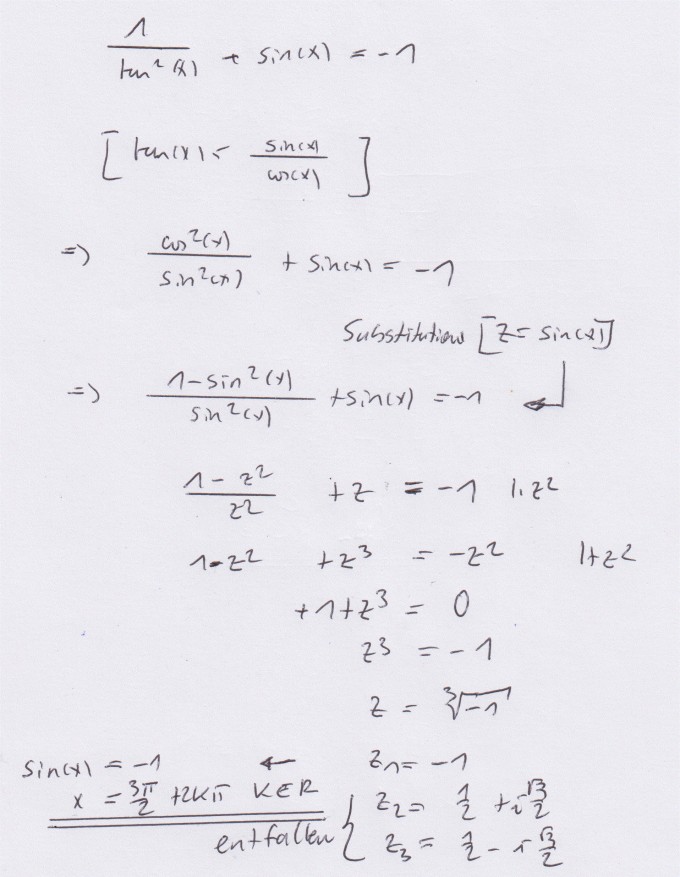 1/tan²(x) + sin(x) = -1
[tan(x) = sin(x)/cos(x)]
=> cos²(x)/sin²(x) + sin(x) = -1
Substitution [z = sin(x)]
=> 1-sin²(x)/sin²(x) + sin(x) = -1 ↵
1-z²/z² + z = -1 |·z²
1-z² + z³ = -z² |+z²
+1+z³ = 0
z³ = -1
z = ³√-1
sin(x) = -1 ← z₁ = -1
x = 3π/2 + 2kπ k∈R z₂ = 1/2 + i √3/2
entfallen { z₃ = 1/2 - i √3/2